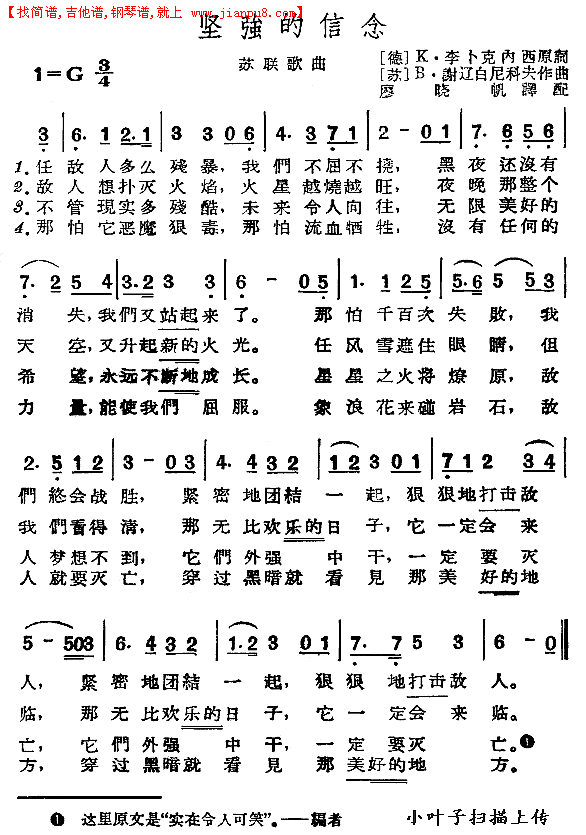 【找简谱,吉他谱,钢琴谱,就上 www.jianpu8.com】
坚強的信念
1=G 3/4
苏联歌曲
[德]K·李卜克內西原詞
[苏]B·謝辽白尼科夫作曲
廖晓帆譯配
3 6· 1 2 1 3 3 3 0 6 4· 3 7 1 2 - 0 1 7· 6 5 6
1. 任敌人多么殘暴，我們不屈不撓，黑夜还沒有
2. 敌人想扑灭火焰，火星越燒越旺，夜晚那整个
3. 不管現实多殘酷，未来令人向往，无限美好的
4. 那怕它恶魔狠毒，那怕流血牺牲，沒有任何的
7· 2 5 4 3· 2 3 3 6 - 0 5 1· 1 2 5 5· 6 5 5 3
消失，我們又站起来了。那怕千百次失敗，我
天空，又升起新的火光。任风雪遮住眼睛，但
希望，永远不断地成长。星星之火将燎原，敌
力量，能使我們屈服。象浪花来碰岩石，敌
2· 5 1 2 3 - 0 3 4· 4 3 2 1 2 3 0 1 7 1 2 3 4
們終会战胜，紧密地团結一起，狠狠地打击敌
我們看得清，那无比欢乐的日子，它一定会来
人梦想不到，它們外强中干，一定要灭
人就要灭亡，穿过黑暗就看見那美好的地
5 - 5 0 3 6· 4 3 2 1· 2 3 0 1 7· 7 5 3 6 - 0
人，紧密地团結一起，狠狠地打击敌人。
临，那无比欢乐的日子，它一定会来临。
亡，它們外强中干，一定要灭亡。❶
方，穿过黑暗就看見那美好的地方。
❶ 这里原文是“实在令人可笑”。——編者
小叶子扫描上传